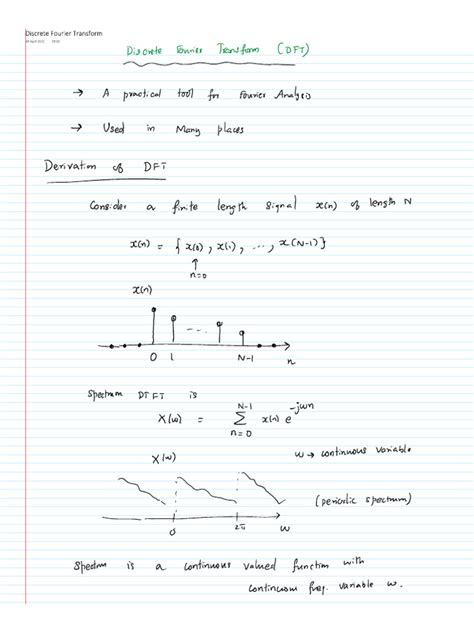 Discrete Fourier Transform
Discrete Fourier Transform (DFT)
→ A practical tool for Fourier Analysis
→ Used in Many places
Derivation of DFT
Consider a finite length signal x(n) of length N
x(n) = { x(0), x(1), ..., x(N-1)}
↑
n=0
x(n)
...
0 1 N-1 n
Spectrum DTFT is
X(w) = N-1 ∑ n=0 x(n) e^-jwn
w → continuous variable
X(w)
(periodic spectrum)
0 2π w
Spectrum is a continuous valued function with
continuous freq. variable w.